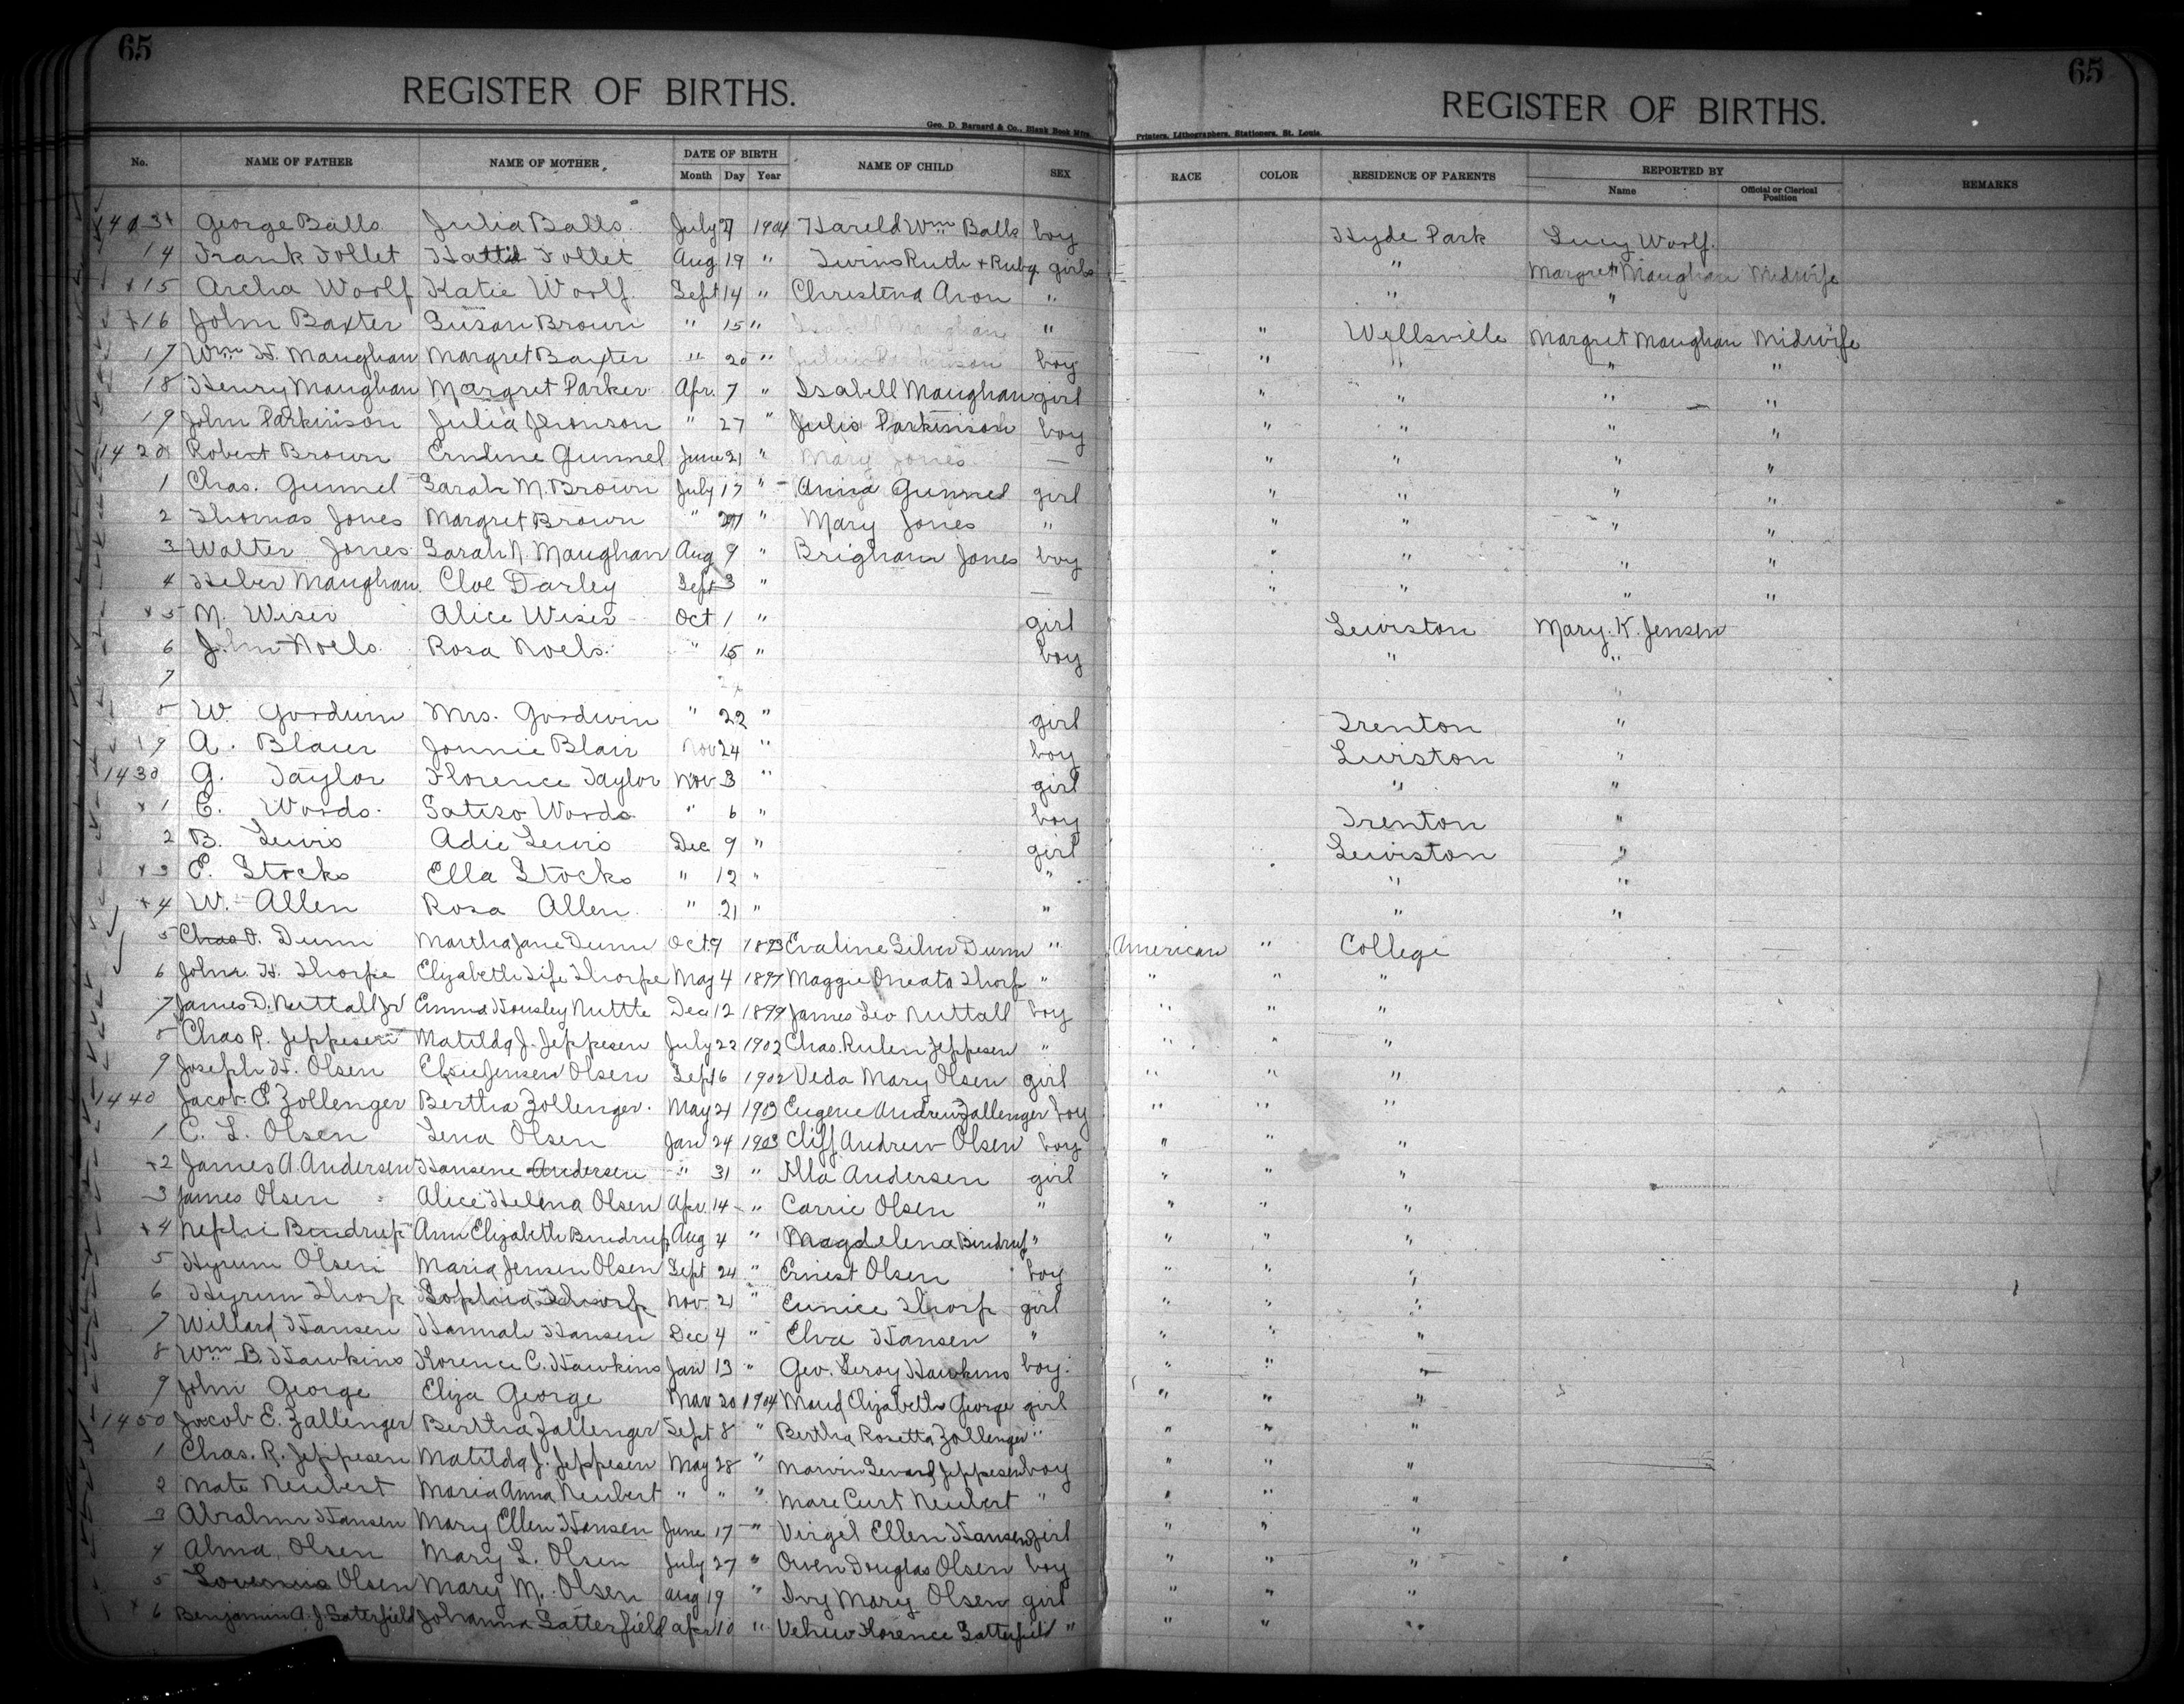 65 65
REGISTER OF BIRTHS. REGISTER OF BIRTHS.
Geo. D. Barnard & Co., Blank Book Mfrs. Printers, Lithographers, Stationers, St. Louis.
No. NAME OF FATHER NAME OF MOTHER DATE OF BIRTH Month Day Year NAME OF CHILD SEX RACE COLOR RESIDENCE OF PARENTS REPORTED BY Name Official or Clerical Position REMARKS
George Balls Julia Balls July 1904 Hareld Wm Balls boy Hyde Park Lucy Woolf.
14 Frank Follet Follet Aug 19 " Twins Ruth + Ruby girls " Margret Maughan Midwife
x15 Woolf Katie Woolf Sept 14 " Christena Aron " " "
x16 John Baxter Susan Brown " 15 " " " Wellsville Margret Maughan Midwife
17 Wm H. Maughan Margret Baxter " 20 " boy " " " "
18 Henry Maughan Margret Parker Apr. 7 " Isabell Maughan girl " " " "
19 John Parkinson Julia Jhonson " 27 " Parkinson boy " " " "
1420 Robert Brown Gunnel June 21 " Mary Jones — " " " "
1 Chas. Gunnel Sarah M. Brown July 17 " Anna Gunnel girl " " " "
2 Thomas Jones Margret Brown " " Mary Jones " " " " "
3 Walter Jones Sarah N. Maughan Aug 9 " Brigham Jones boy " " " "
4 Heber Maughan Cloe Darley Sept 3 " — " " " "
x5 M. Wiser Alice Wiser Oct 1 " girl Lewiston Mary K. Jensen
6 John Noels Rosa Noels " 15 " boy " "
7
8 W. Goodwin Mrs. Goodwin " 22 " girl Trenton "
x9 A. Blair Jonnie Blair Nov 24 " boy Lewiston "
1430 G. Taylor Florence Taylor Nov 3 " girl " "
x1 C. Woods " 6 " boy Trenton "
2 B. Lewis Adie Lewis Dec 9 " girl Lewiston "
x3 E. Stocks Ella Stocks " 12 " " " "
x4 W. Allen Rosa Allen " 21 " " " "
5 Dunn Martha Jane Dunn Oct 9 1893 Evaline Silver Dunn " American " College
6 John H. Thorpe Elizabeth Thorpe May 4 Maggie Oneata Thorp " " " "
7 James D. Nuttall Jr Emma Housley Nuttle Dec 12 1899 James Leo Nuttall boy " " "
8 Chas R. Jeppesen Matilda J. Jeppesen July 22 1902 Chas. Rulen Jeppesen " " " "
9 Joseph H. Olsen Elsie Jensen Olsen Sept 6 1902 Veda Mary Olsen girl " " "
1440 Jacob E. Zollenger Bertha Zollenger. May 21 1903 Eugene Andrew Zollenger boy " " "
1 C. L. Olsen Lena Olsen Jan 24 1903 Cliff Andrew Olsen boy " " "
x2 James A. Andersen Hansene Andersen " 31 " Illa Andersen girl " " "
3 James Olsen Alice Helena Olsen Apr. 14 " Carrie Olsen " " " "
x4 Nephi Bindrup Ann Elizabeth Bindrup Aug 4 " Magdelena Bindrup " " " "
5 Hyrum Olsen Maria Jensen Olsen Sept 24 " Ernest Olsen boy " " "
6 Hyrum Thorp Sophia Thorp Nov. 21 " Eunice Thorp girl " " "
7 Willard Hansen Hannah Hansen Dec 4 " Elva Hansen " " " "
8 Wm B. Hawkins Florence C. Hawkins Jan 13 " Geo. Leroy Hawkins boy " " "
9 John George Eliza George Mar 20 1904 Maud Elizabeth George girl " " "
1450 Jacob E. Zallenger Bertha Zallenger Sept 8 " Bertha Rosetta Zollenger " " " "
1 Chas. R. Jeppesen Matilda J. Jeppesen May 28 " Jeppesen boy " " "
2 Nate Neubert Maria Anna Neubert " " " Curt Neubert " " " "
3 Hansen Mary Ellen Hansen June 17 " Virgel Ellen Hansen girl " " "
4 Alma Olsen Mary L. Olsen July 27 " Owen Douglas Olsen boy " " "
5 Olsen Mary M. Olsen Aug 19 " Ivy Mary Olsen girl " " "
x6 Benjamin A. J. Saterfield Johanna Satterfield apr 10 " Florence Satterfield " " " "